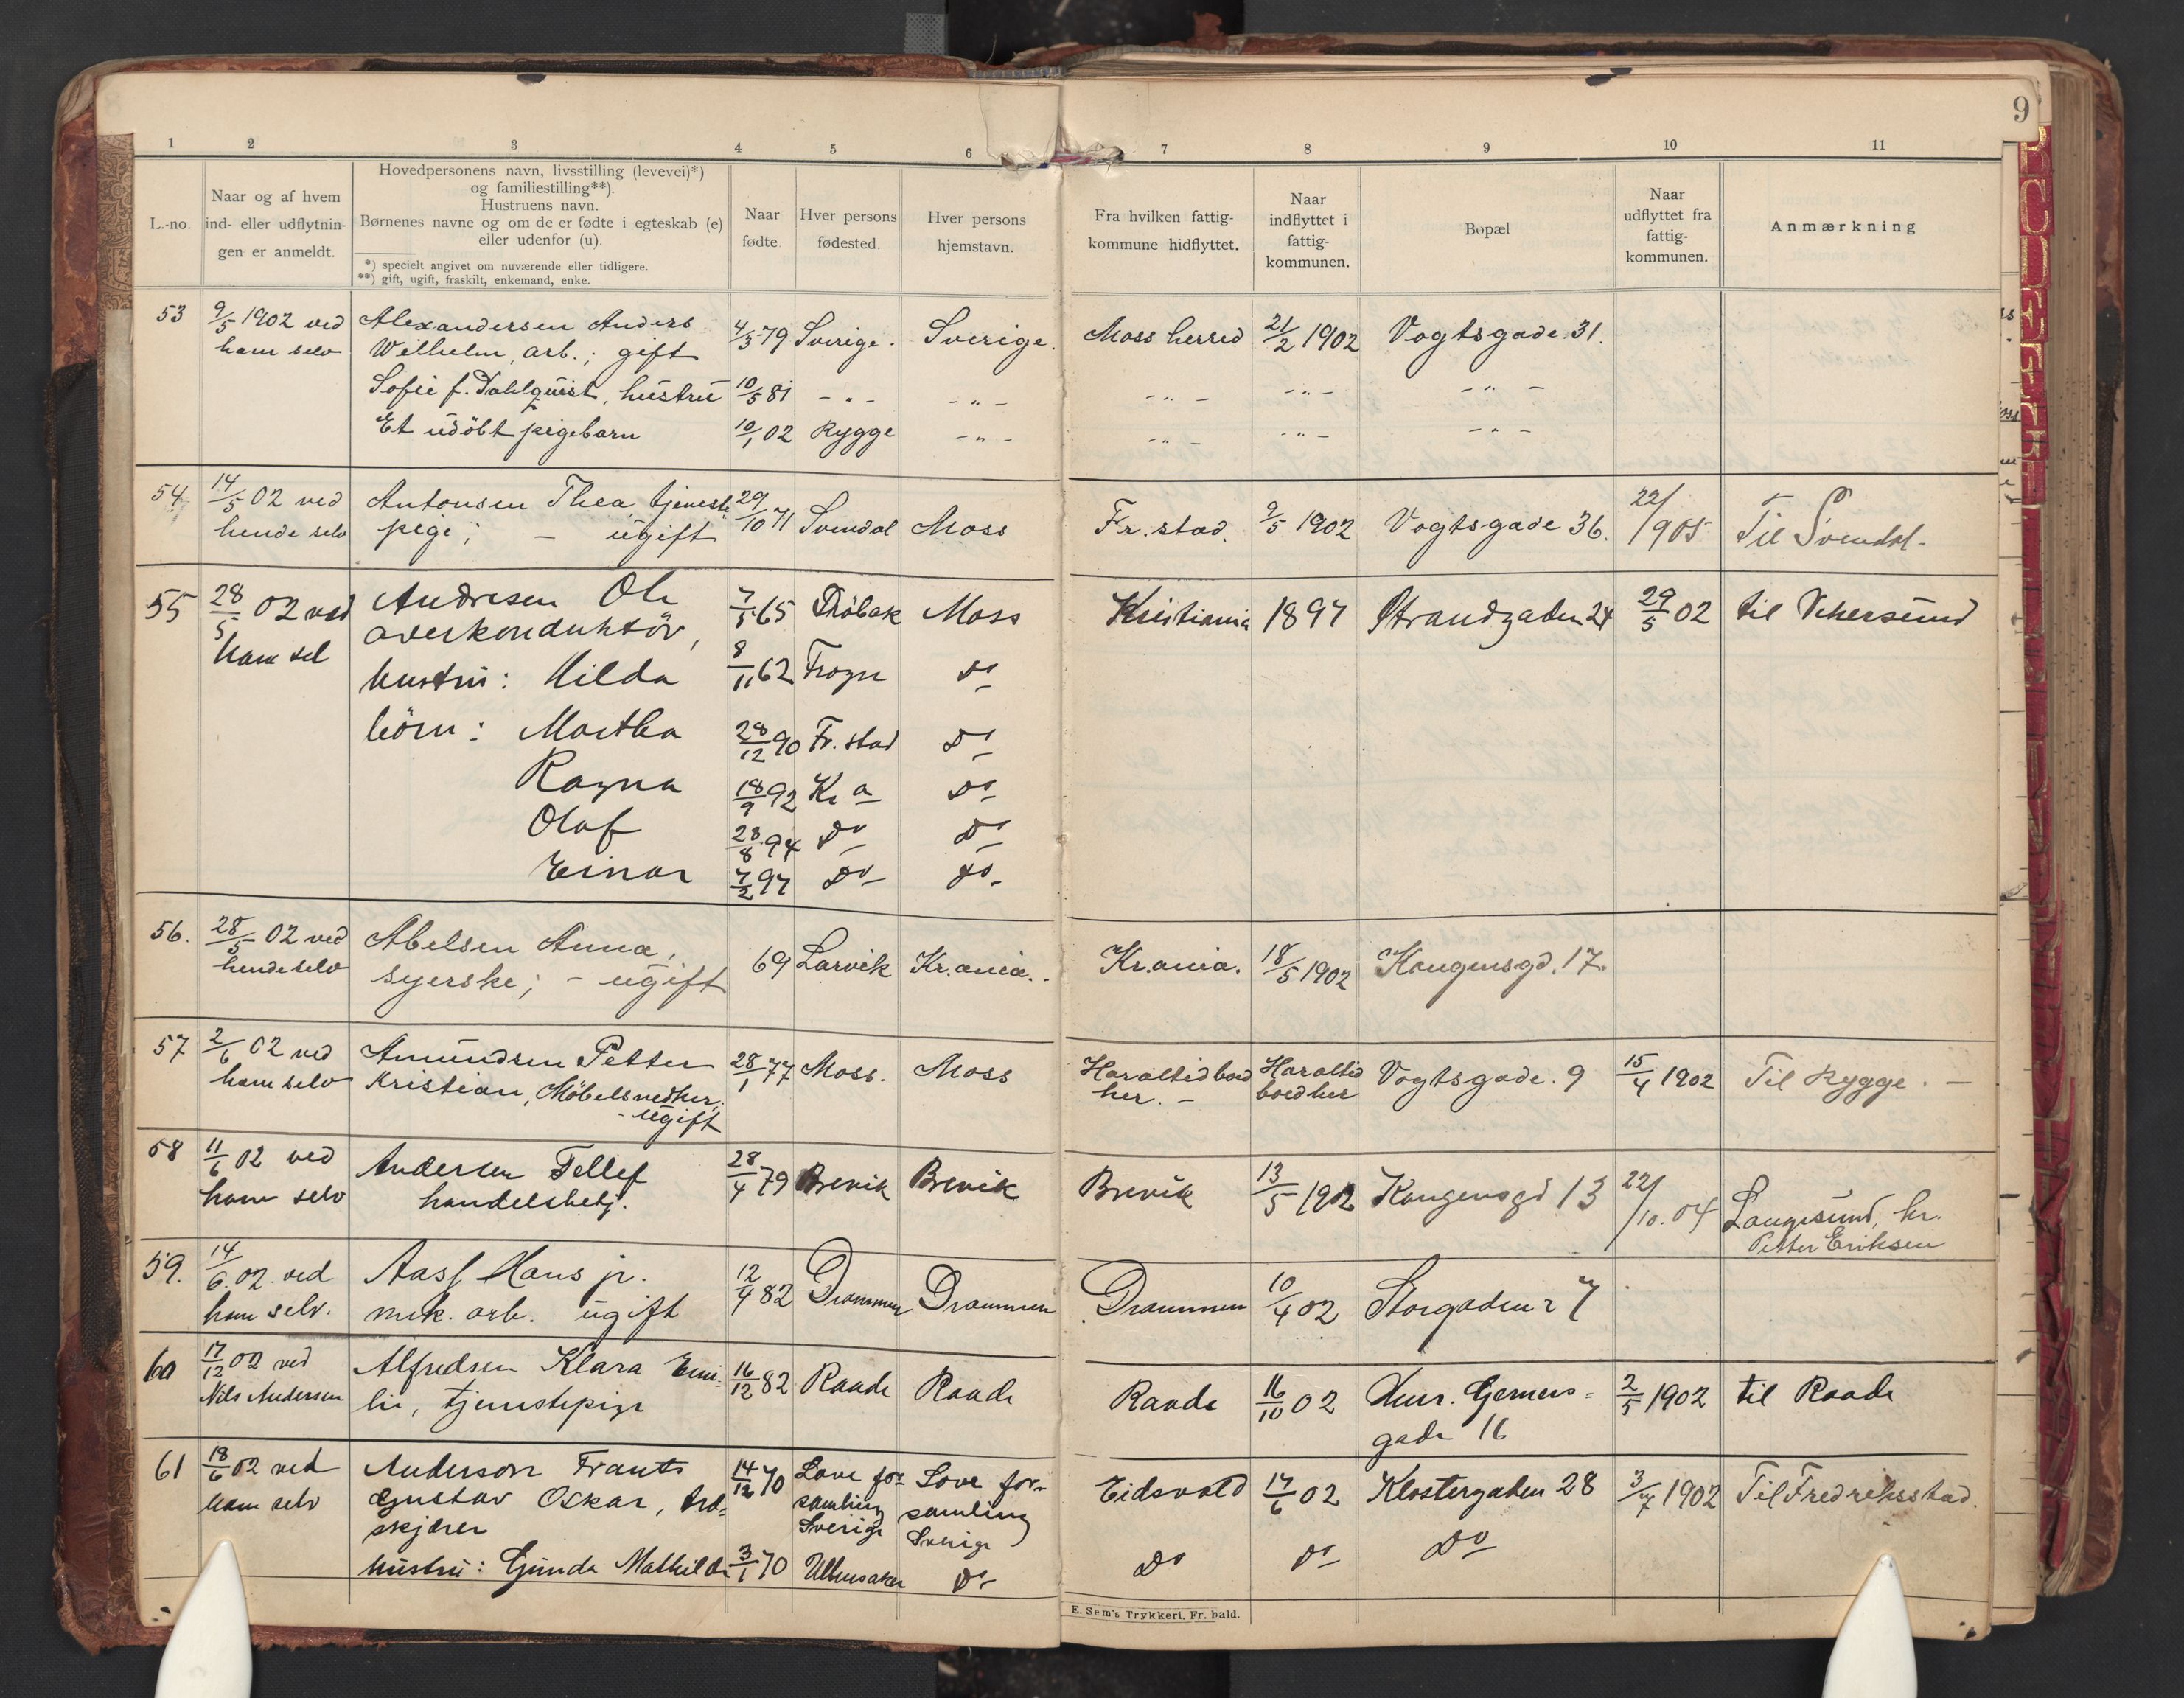 9
1 2 3 4 5 6 7 8 9 10 11
L.-no.
Naar og af hvem
ind- eller udflytnin-
gen er anmeldt.
Hovedpersonens navn, livsstilling (levevei)*)
og familiestilling**).
Hustruens navn.
Børnenes navne og om de er fødte i egteskab (e)
eller udenfor (u).
*) specielt angivet om nuværende eller tidligere.
**) gift, ugift, fraskilt, enkemand, enke.
Naar
fødte.
Hver persons
fødested.
Hver persons
hjemstavn.
Fra hvilken fattig-
kommune hidflyttet.
Naar
indflyttet i
fattig-
kommunen.
Bopæl
Naar
udflyttet fra
fattig-
kommunen.
Anmærkning
53 9/5 1902 ved Alexandersen Anders 4/3 79 Sverige. Sverige. Moss herred 21/2 1902 Vogtsgade 31.
ham selv Wilhelm, arb.; gift
Sofie f. Dahlquist, hustru 10/5 81 - " - - " - - " - - " - - " -
Et udöbt pigebarn 10/1 02 Rygge - " - - " - - " - - " -
54 14/5 02 ved Antonsen Thea, tjeneste 29/10 71 Svendal Moss Fr.stad. 9/5 1902 Vogtsgade 36. 22/9 05 Til Svendal.
hende selv pige; - ugift
55 28/5 02 ved Andresen Ole 7/5 65 Dröbak Moss Kristiania 1897 Strandgaden 24 29/5 02 til Vikersund
ham sel overkonduktör,
hustru: Hilda 8/11 62 Frogn Do
börn: Martha 28/12 90 Fr. stad Do
Ragna 18/9 92 Kr a Do
Olaf 28/8 94 Do Do
Einar 7/2 97 Do Do
56. 28/5 02 ved Abelsen Anna, 69 Larvik Kr.ania. Kr.ania. 18/5 1902 Kongensgd. 17.
hende selv syerske; - ugift
57 2/6 02 ved Amundsen Petter 28/1 77 Moss. Moss Haraltid boed Haraltid Vogtsgade. 9 15/4 1902 Til Rygge. -
ham selv Kristian, Möbelsnedker; her. - boed her
- ugift
58 11/6 02 ved Andersen Tellef 28/4 79 Brevik Brevik Brevik 13/5 1902 Kongensgd 13 22/10. 04 Langesund, hr.
ham selv handelsbetj. Petter Eriksen
59. 14/6. 02. ved Aass Hans jr. 12/4 82 Drammen Drammen Drammen 10/4 02 Storgaden 27
ham selv. mek. arb. ugift
60 17/12 02 ved Alfredsen Klara Emi- 16/12 82 Raade Raade Raade 16/10 02 Hur. Gerners- 2/5 1902 til Raade
Nils Andersen lie, tjenestepige gade 16
61 18/6 02 ved Anderson Frants 14/12 70 Love for- Love for- Eidsvold 17/6 02 Klostergaden 28 3/7 1902 Til Fredriksstad.
ham selv Gustav Oskar, brd- samling samling
skjærer Sverige Sverige
hustru: Gunda Mathilde 3/1 70 Ullensaker Do Do Do Do
E. Sem's Trykkeri, Fr. hald.